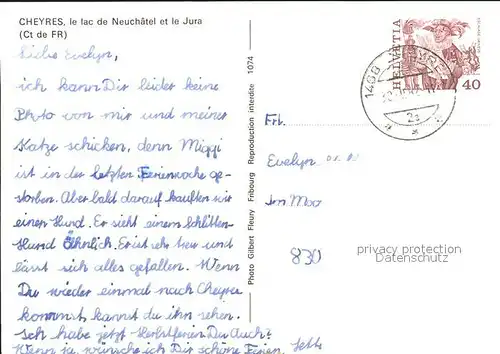 CHEYRES, le lac de Neuchâtel et le Jura
(Ct de FR)
Liebe Evelyn,
ich kann Dir leider keine
Photo von mir und meiner
Katze schicken, denn Miggi
ist in der letzten Ferienwoche ge-
storben. Aber bald darauf kauften wir
einen Hund. Er sieht einem Schlitten-
Hund Ähnlich. Er ist ehr treu und
lässt sich alles gefallen. Wenn
Du wieder einmal nach Cheyres
kommst kannst du ihn sehen.
Ich habe jetzt Herbstferien Du Auch?
Wenn ja, wünsche ich Dir schöne Ferien.
Photo Gilbert Fleury Fribourg Reproduction interdite 1074
HELVETIA
40
1468
Frl.
Evelyn
Im Moo
830
privacy protection
Datenschutz